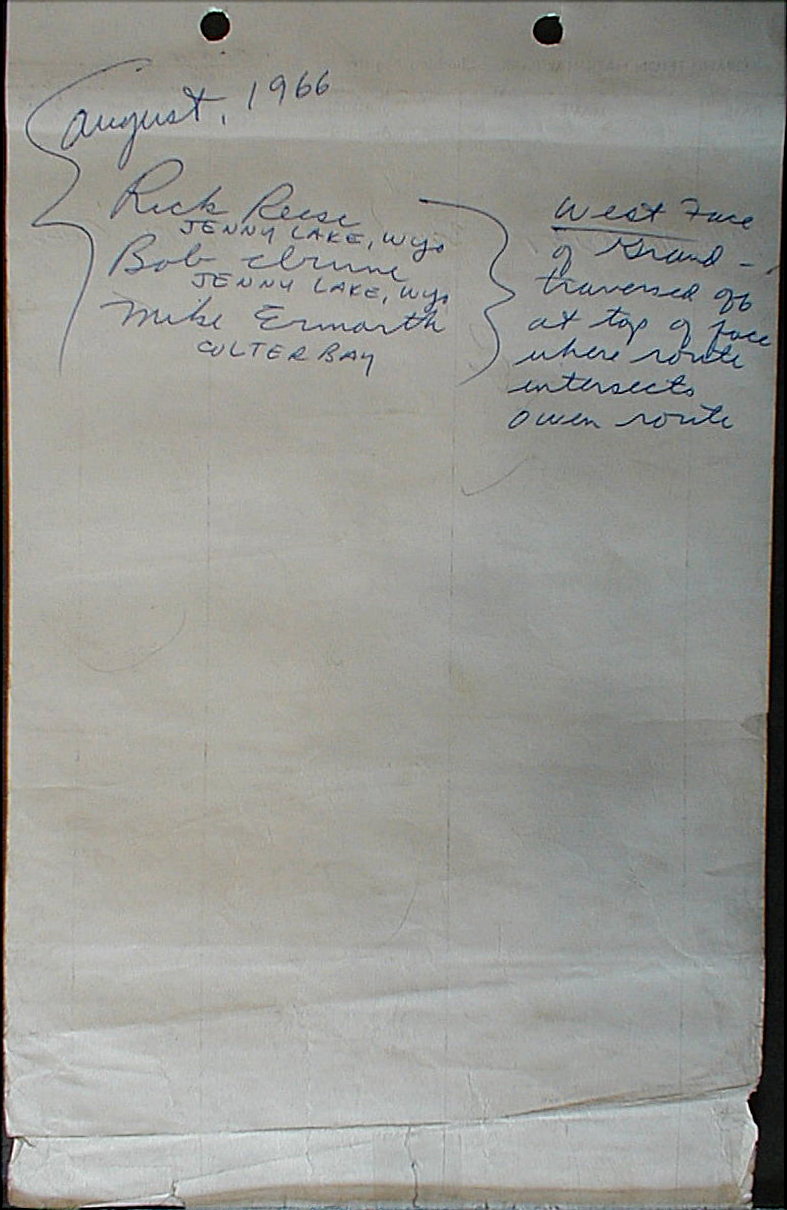 August, 1966
Rick Reese
JENNY LAKE, Wyo
Bob Irvine
JENNY LAKE, Wyo
Mike Ermarth
COLTER BAY
West Face
of Grand -
traversed off
at top of face
where route
intersects
Owen route